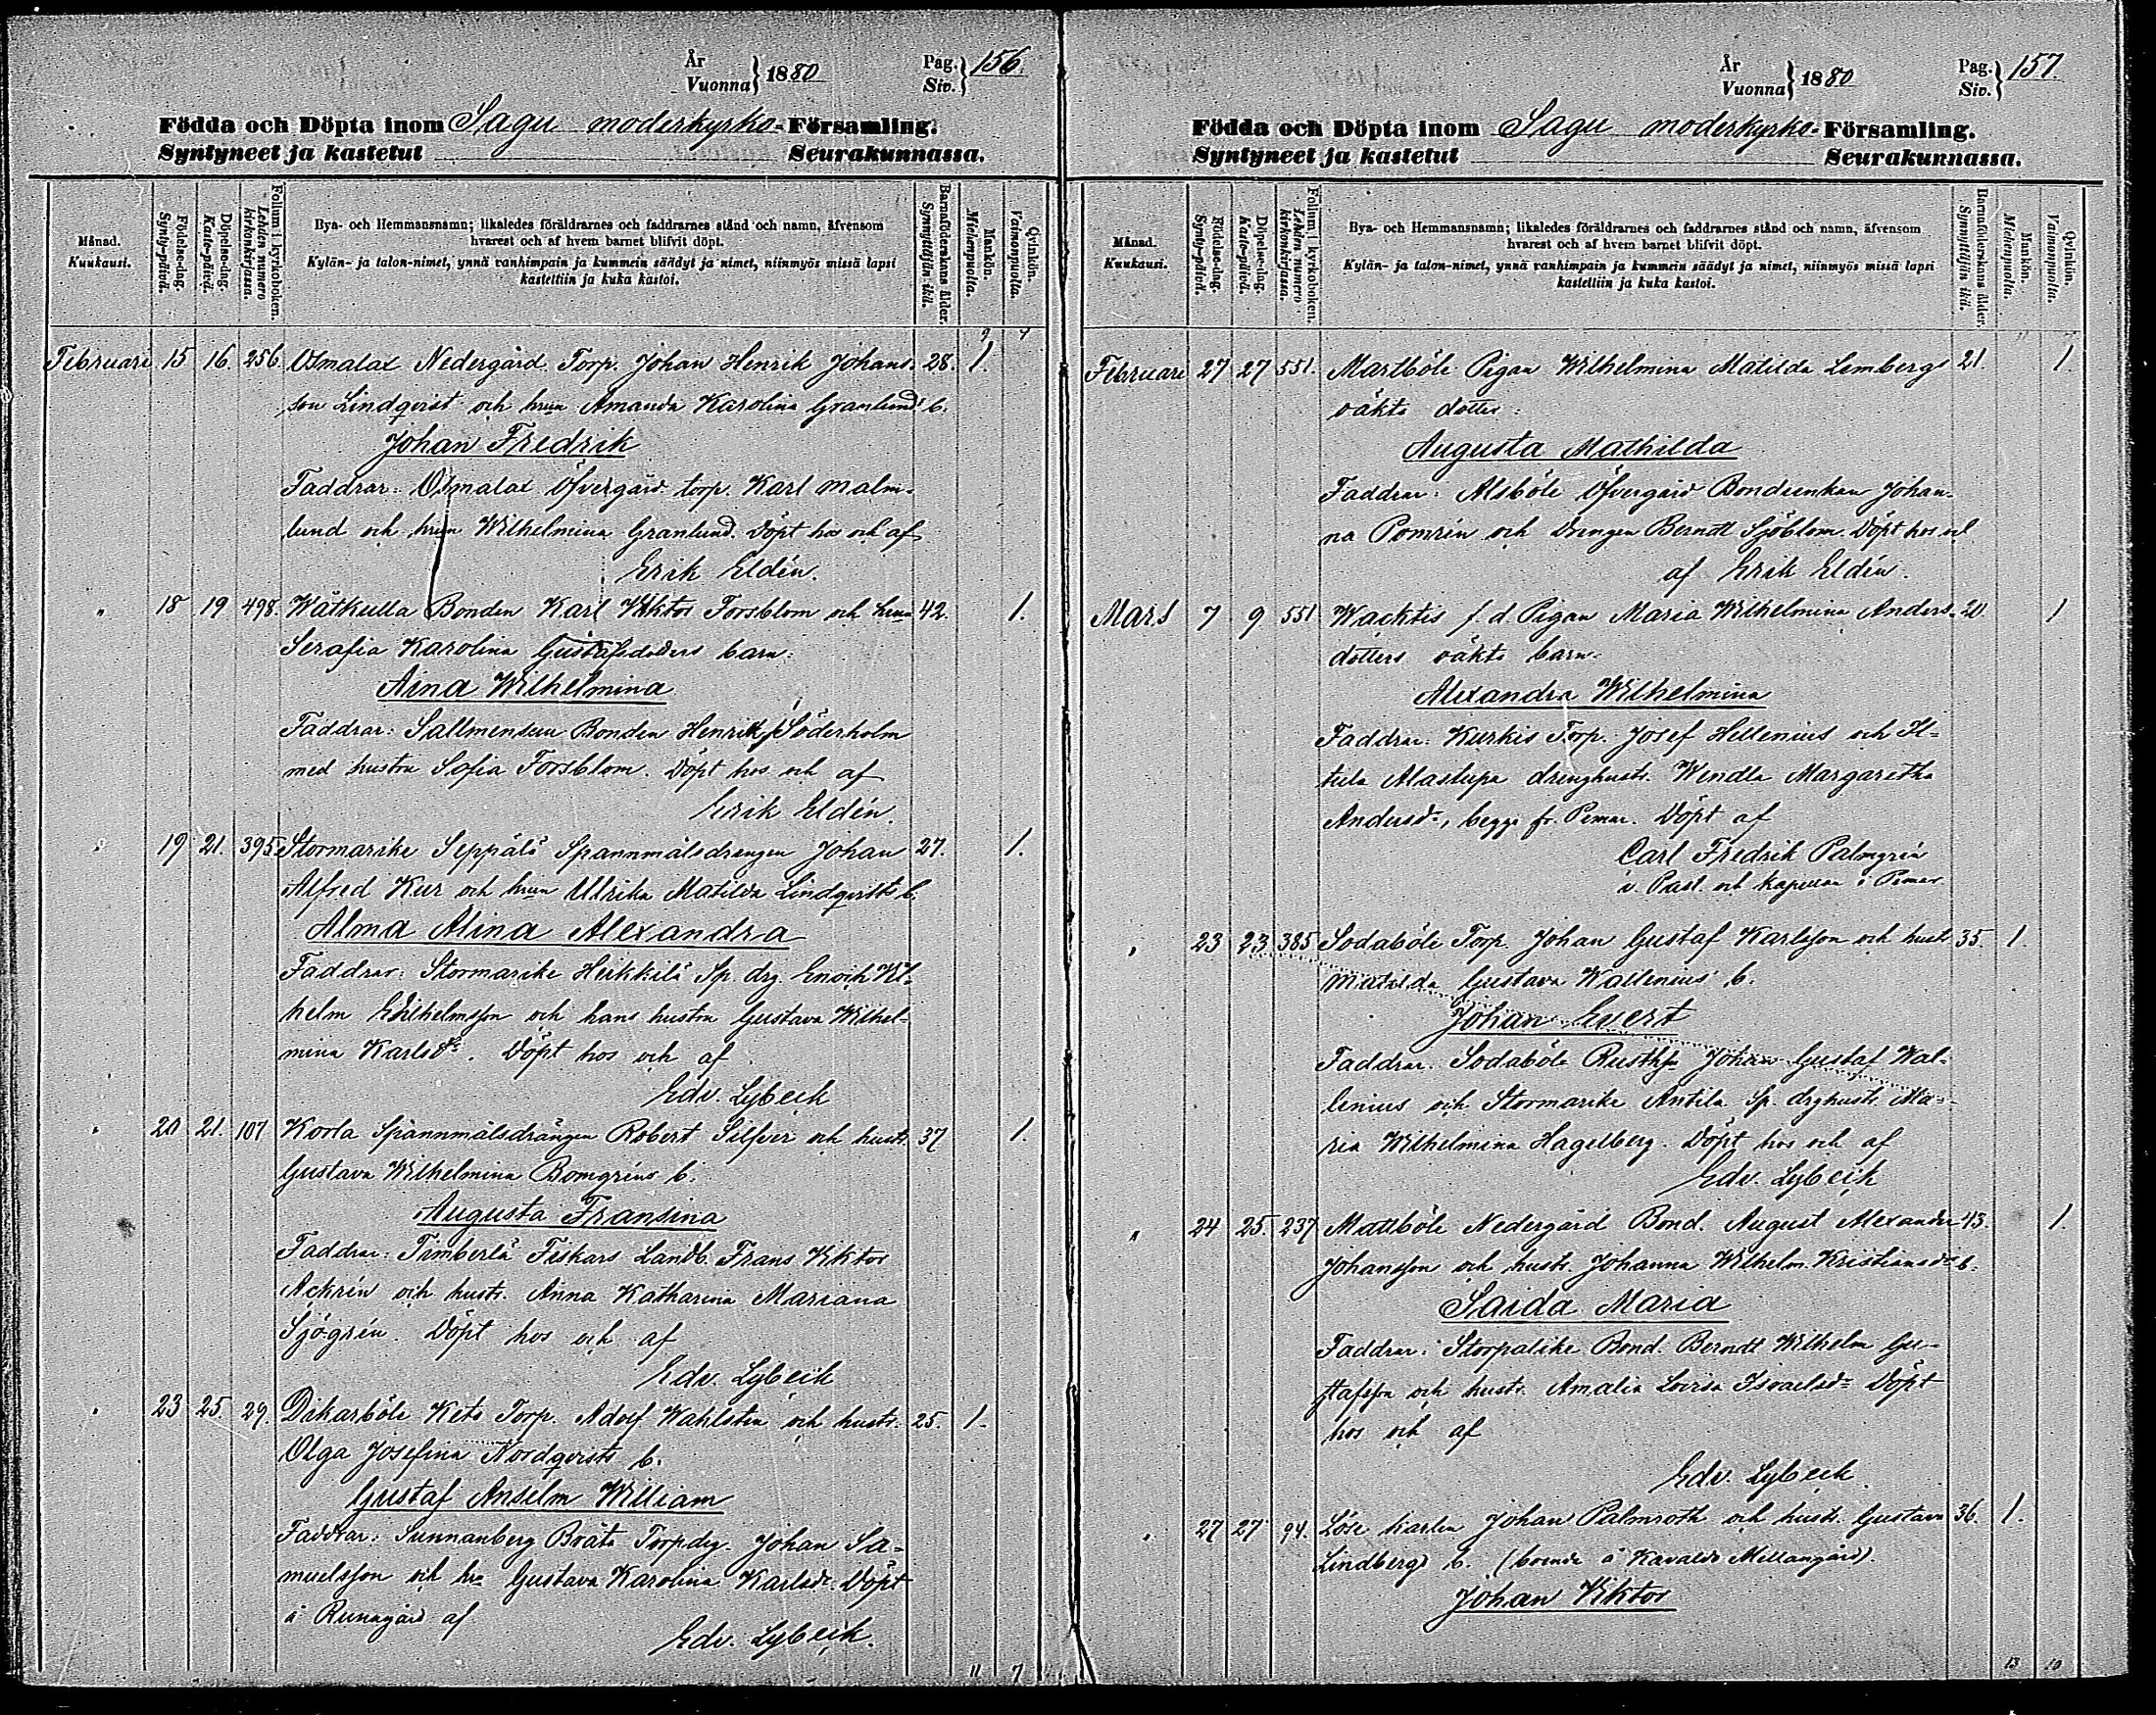 År
Vuonna } 1880
Pag.
Siv. } 156.
Födda och Döpta inom Sagu moderkyrko-Församling.
Syntyneet ja kastetut Seurakunnassa.
Månad.
Kuukausi.
Födelse-dag.
Synty-päivä.
Döpelse-dag.
Kaste-päivä.
Folium i kyrkoboken.
Lehden numero kirkonkirjassa.
Bya- och Hemmansnamn; likaledes föräldrarnes och faddrarnes stånd och namn, äfvensom
hvarest och af hvem barnet blifvit döpt.
Kylän- ja talon-nimet, ynnä vanhimpain ja kummein säädyt ja nimet, niinmyös missä lapsi
kastettiin ja kuka kastoi.
Barnaföderskans ålder.
Synnyttäjän ikä.
Mankön.
Miehenpuolta.
Qvinkön.
Vaimonpuolta.
9 4
Februari 15 16. 256. Osmalax Nedergård Torp. Johan Henrik Johans- 28. 1.
son Lindqvist och hrun Amanda Karolina Granlunds b.
Johan Fredrik
Faddrar: Osmalax Öfvergård torp. Karl Malm-
lund och hrun Wilhelmina Granlund. Döpt hos och af
Erik Eldén.
" 18 19 498. Wåtkulla Bonden Karl Viktor Forsblom och hrun 42. 1.
Serafia Karolina Gustafsdotters barn:
Aina Wilhelmina
Faddrar: Sallmensuu Bonden Henrik Söderholm
med hustru Sofia Forsblom. Döpt hos och af
Erik Eldén.
" 19 21. 395 Stormarike Seppälä Spannmålsdrengen Johan 27. 1.
Alfred Kur och hrun Ulrika Matilda Lindqvists b.
Alma Alina Alexandra
Faddrar: Stormarike Heikkilä Sp. drg. Enoch Wil-
helm Wilhelmsson och hans hustru Gustava Wilhel-
mina Karlsdr. Döpt hos och af
Edv. Lybeck
" 20 21. 107 Korla Spannmålsdrängen Robert Silfver och hustr. 37 1.
Gustava Wilhelmina Bomgréns b.
Augusta Fransina
Faddrar: Timberlä Fiskars Landb. Frans Viktor
Ackrén och hustr. Anna Katharina Mariana
Sjögrén. Döpt hos och af
Edv. Lybeck
" 23 25. 29. Dikarböle Keto Torp. Adolf Wahlstén och hustr. 25. 1.
Olga Josefina Nordqvists b.
Gustaf Anselm William
Faddrar: Sunnanberg Bråta Torpdrg. Johan Sa-
muelsson och hru Gustava Karolina Karlsdr. Döpt
å Runagård af
Edv. Lybeck.
11 7
År
Vuonna } 1880
Pag.
Siv. } 157.
Födda och Döpta inom Sagu moderkyrko-Församling.
Syntyneet ja kastetut Seurakunnassa.
Månad.
Kuukausi.
Födelse-dag.
Synty-päivä.
Döpelse-dag.
Kaste-päivä.
Folium i kyrkoboken.
Lehden numero kirkonkirjassa.
Bya- och Hemmansnamn; likaledes föräldrarnes och faddrarnes stånd och namn, äfvensom
hvarest och af hvem barnet blifvit döpt.
Kylän- ja talon-nimet, ynnä vanhimpain ja kummein säädyt ja nimet, niinmyös missä lapsi
kastettiin ja kuka kastoi.
Barnaföderskans ålder.
Synnyttäjän ikä.
Mankön.
Miehenpuolta.
Qvinkön.
Vaimonpuolta.
11 7
Februari 27 27 551. Martböle Pigan Wilhelmina Matilda Lembergs 21. 1.
oäkta dotter:
Augusta Mathilda
Faddrar: Alsböle Öfvergård Bondeenkan Johan-
na Pomrén och Drengen Berndt Sjöblom. Döpt hos och
af Erik Eldén.
Mars 7 9 551 Wacktis f. d. Pigan Maria Wilhelmina Anders- 20. 1
dotters oäkta barn:
Alexandra Wilhelmina
Faddrar: Kurkis Torp. Josef Hellenius och It-
tula Alastupa drenghustr. Wendla Margaretha
Andersdr, begge fr. Pemar. Döpt af
Carl Fredrik Palmgrén
v. Past. och kapellan i Pemar.
" 23 23 385 Sodaböle Torp. Johan Gustaf Karlsson och hustr. 35. 1.
Matilda Gustava Wallenius' b.
Johan Evert
Faddrar: Sodaböle Rusthr Johan Gustaf Wal-
lenius och Stormarike Antila Sp. drghustr. Ma-
ria Wilhelmina Hagelberg. Döpt hos och af
Edv. Lybeck
" 24 25. 237 Mattböle Nedergård Bond. August Alexander 43. 1.
Johansson och hustr. Johanna Wilhelm. Kristiansdr b.
Saida Maria
Faddrar: Storpalike Bond. Berndt Wilhelm Gu-
stafsson och hustr. Amalia Lovisa Israelsdr Döpt
hos och af
Edv. Lybeck.
" 27 27 94. Löse karlen Johan Palmroth och hustr. Gustava 36. 1.
Lindbergs b. (boende å Kavaldo Mellangård).
Johan Viktor
13 10